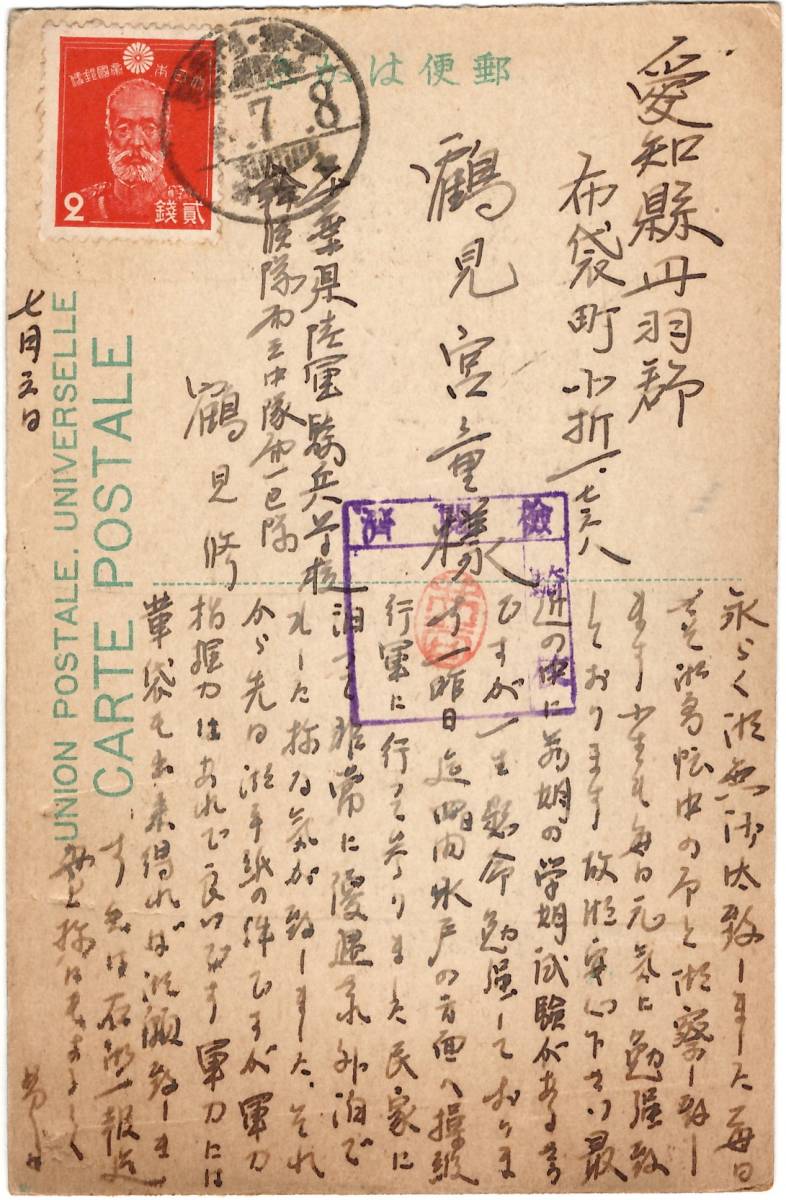 郵便はがき
大日本帝國郵便
貳錢
2
7.8
UNION POSTALE UNIVERSELLE
CARTE POSTALE
愛知縣丹羽郡
布袋町小折一、七六八
鶴見宮重様
檢閲濟
千葉県陸軍騎兵学校
中隊第一区隊
鶴見修
七月五日
永らく御無沙汰致しました毎日
御多忙中の事と御察し致し
ます 小生も毎日元気に勉強致
しております故御安心下さい 最
近の中に前期の学期試験がある
ですが一生懸命勉強しておりま
す 一昨日迄 日間水戸の方面へ
行軍に行って参りました 民家に
泊って非常に優遇され外泊で
もした様な気が致しました、それ
から先日御手紙の件ですが軍刀
指揮刀はあれで良いです 軍刀には
革袋も出来得れば御願致しま
す 先は右御一報迄
母上様にもよろしく